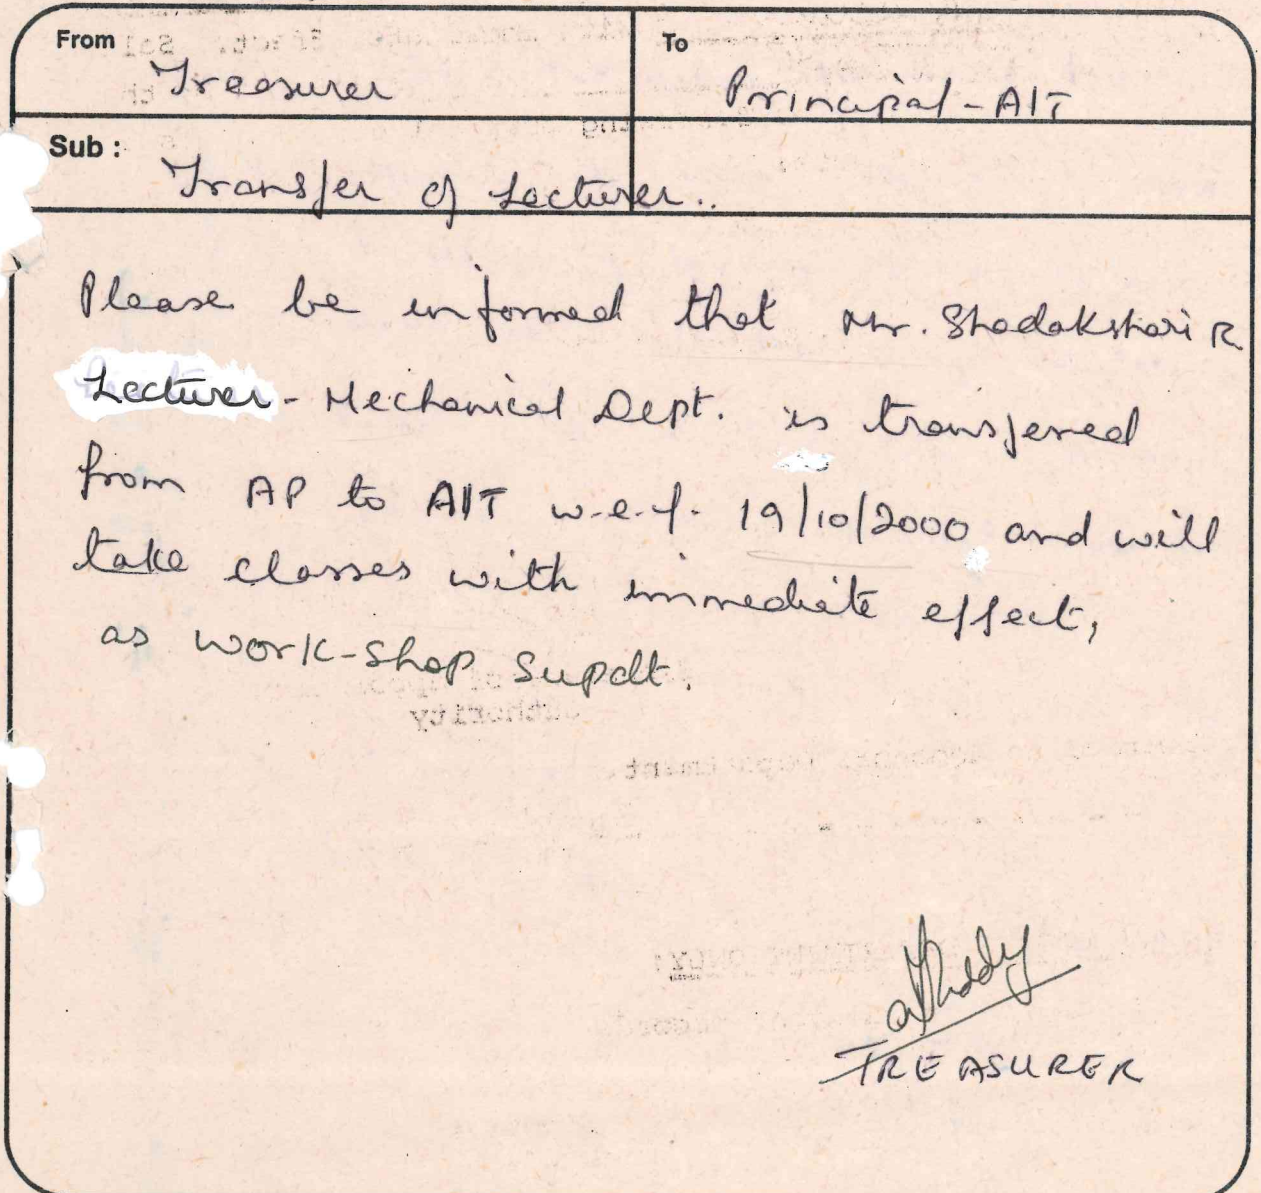 From
Treasurer
To
Principal - AIT
Sub :
Transfer of Lecturer..
Please be informed that Mr. Shadakshari R
Lecturer - Mechanical Dept. is transferred
from AP to AIT w.e.f. 19/10/2000 and will
take classes with immediate effect,
as work-shop Supdt.
TREASURER